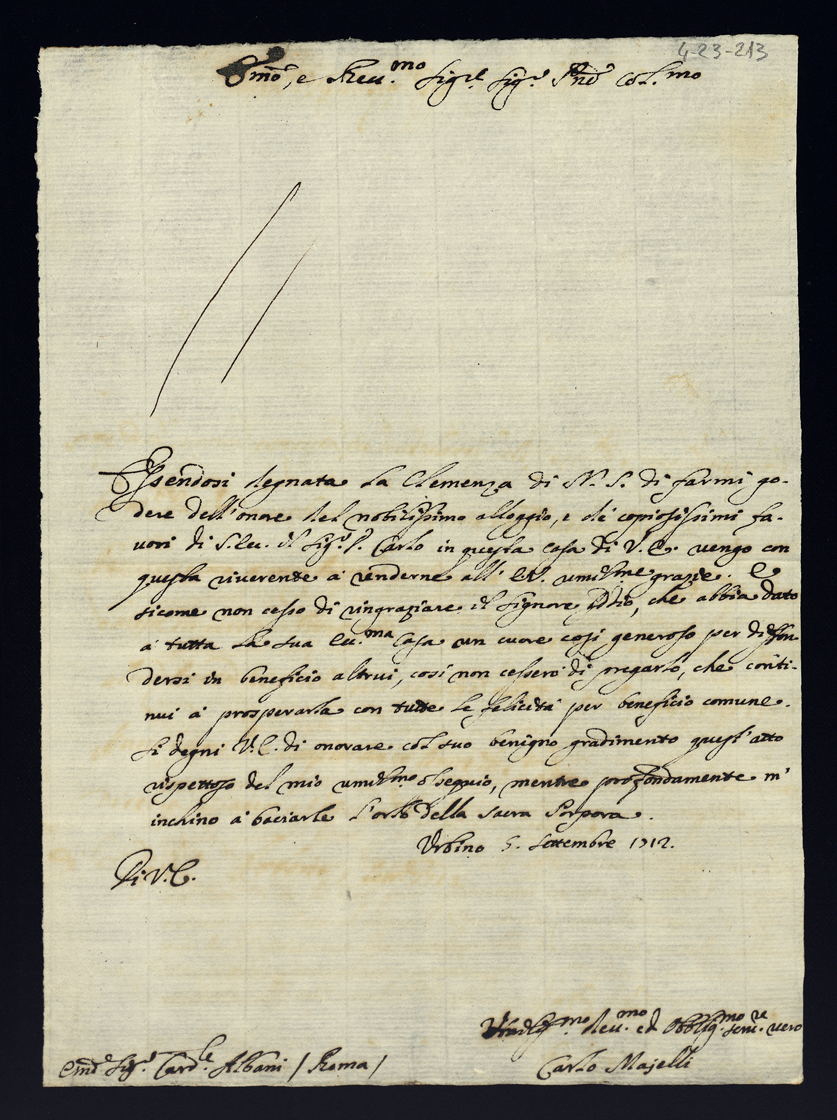 4-23-213
Emo, e Reu.mo Sig.r Sig.r Pne Col.mo
Essendosi degnata la Clemenza di N. S. di farmi go-
dere dell'onore del nobilissimo alloggio, e dé copiosissimi fa-
uori di S. Ecc. il Sig.r D. Carlo in questa casa di V. E. vengo con
questa riuerente à renderne all'E.V. umilme grazie. E
sicome non cesso di ringraziare il Signore Iddio, che abbia dato
à tutta la sua Ecc.ma Casa un cuore così generoso per diffon-
dersi in beneficio altrui, così non cesserò di pregarlo, che conti-
nui à prosperarla con tutte le felicità per beneficio comune.
Si degni V. E. di onorare col suo benigno gradimento quest'atto
rispettoso del mio umilmo ossequio, mentre profondamente m'
inchino à baciarle l'orlo della sacra Porpora.
Urbino 5. Settembre 1712.
Di V. E.
Umiliss.mo deu.mo ed Obblig.mo seru.re vero
Carlo Majelli
Emo Sig.r Card.le Albani / Roma /